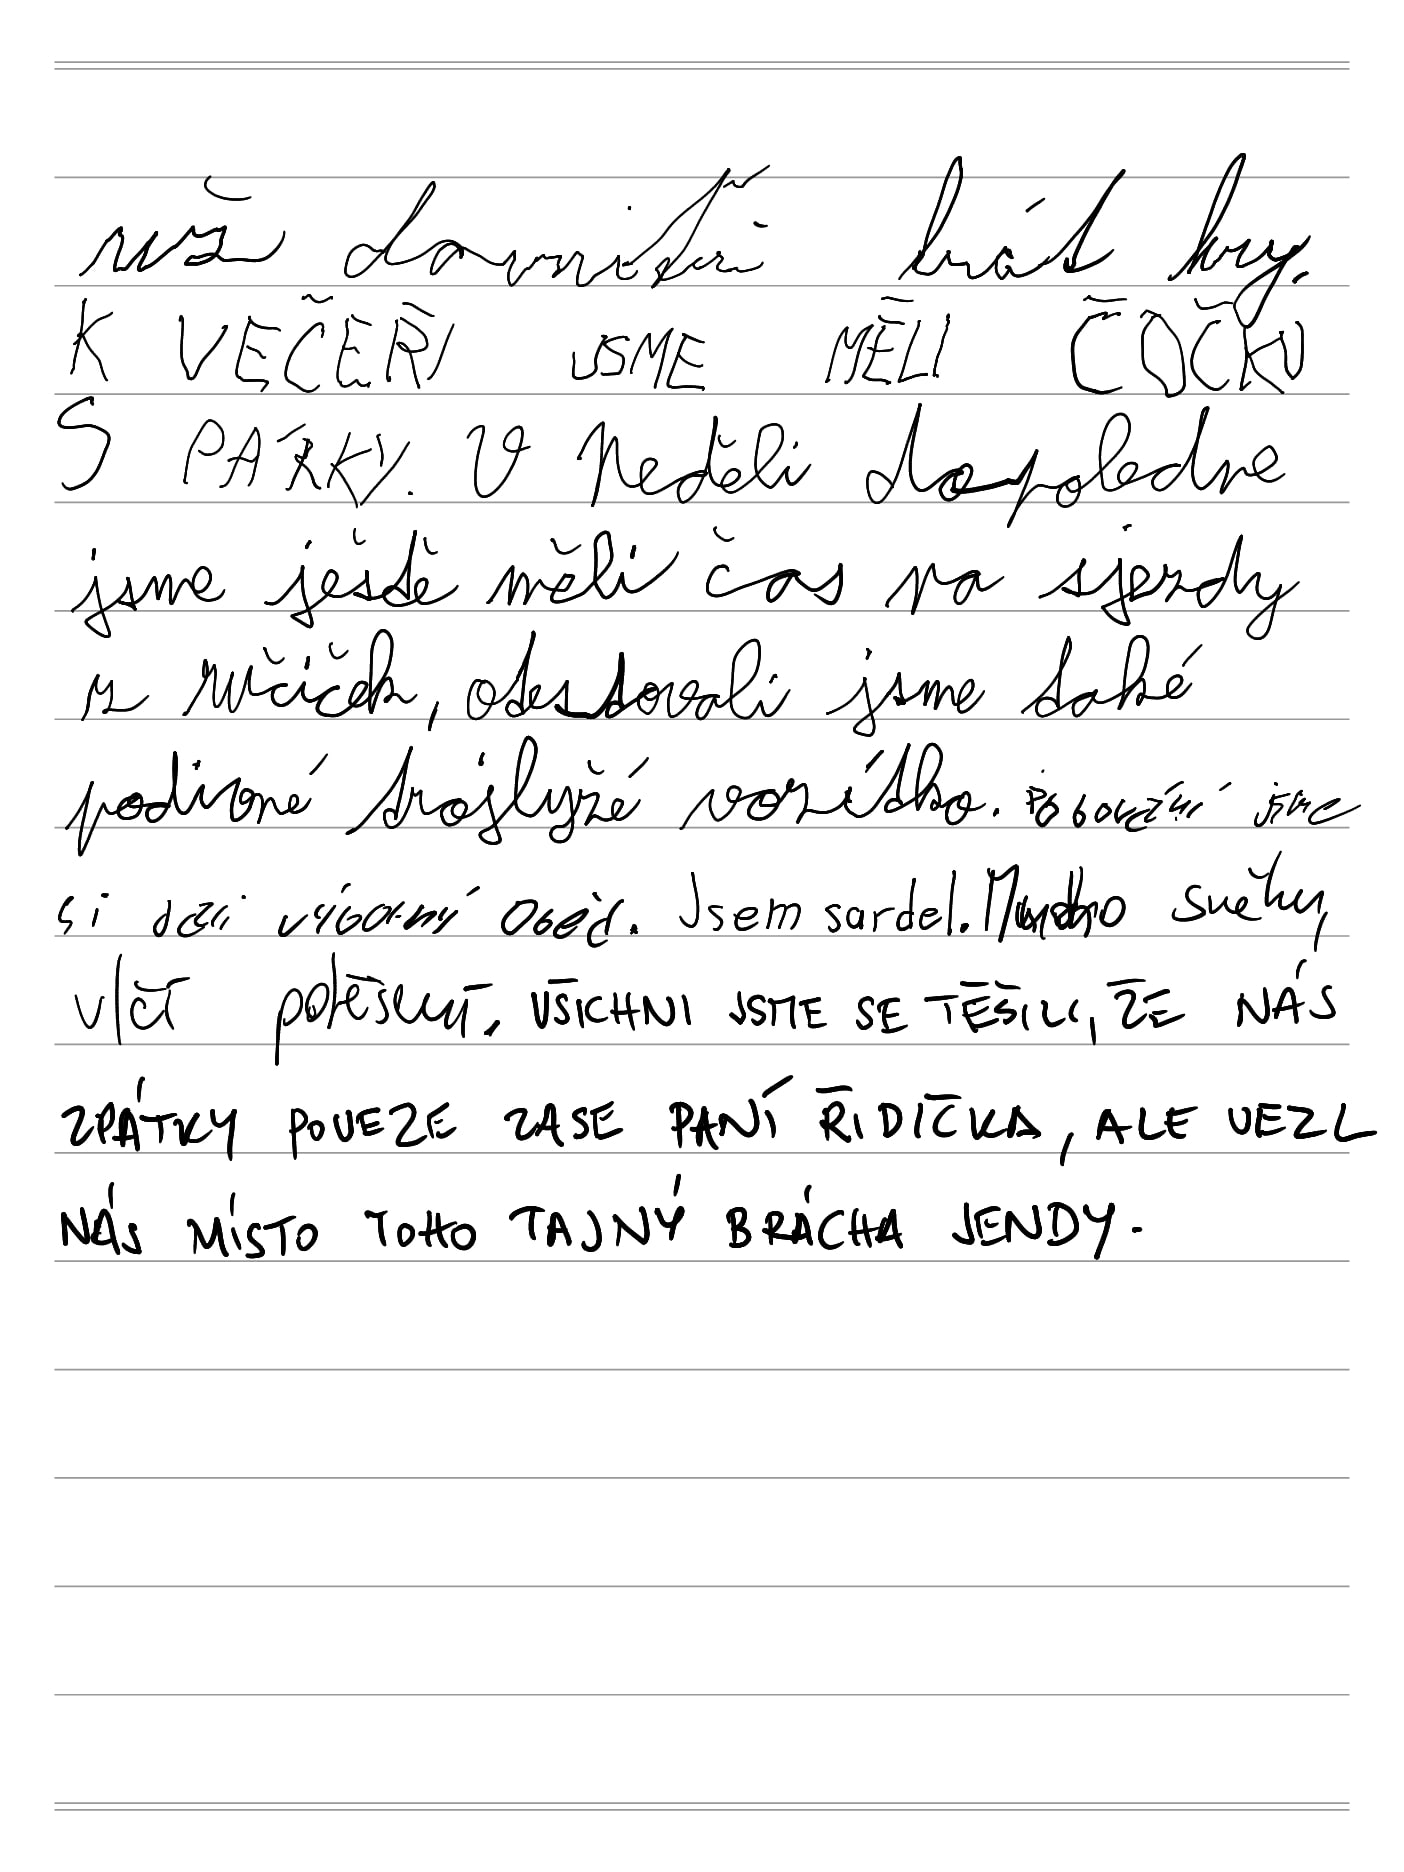 už dovnitř hrát hry.
K VEČEŘI JSME MĚLI ČOČKU
S PÁRKY. V Neděli dopoledne
jsme ještě měli čas na sjezdy
z kopeček, otestovali jsme také
podivné trojlyžé vozítko. Po bobování jsme
si dali výborný Oběd. Jsem sardel. Mnoho sněhu,
vlčí potěšení. VŠICHNI JSME SE TĚŠILI, ŽE NÁS
ZPÁTKY POVEZE ZASE PANÍ ŘIDIČKA, ALE VEZL
NÁS MÍSTO TOHO TAJNÝ BRÁCHA JENDY.